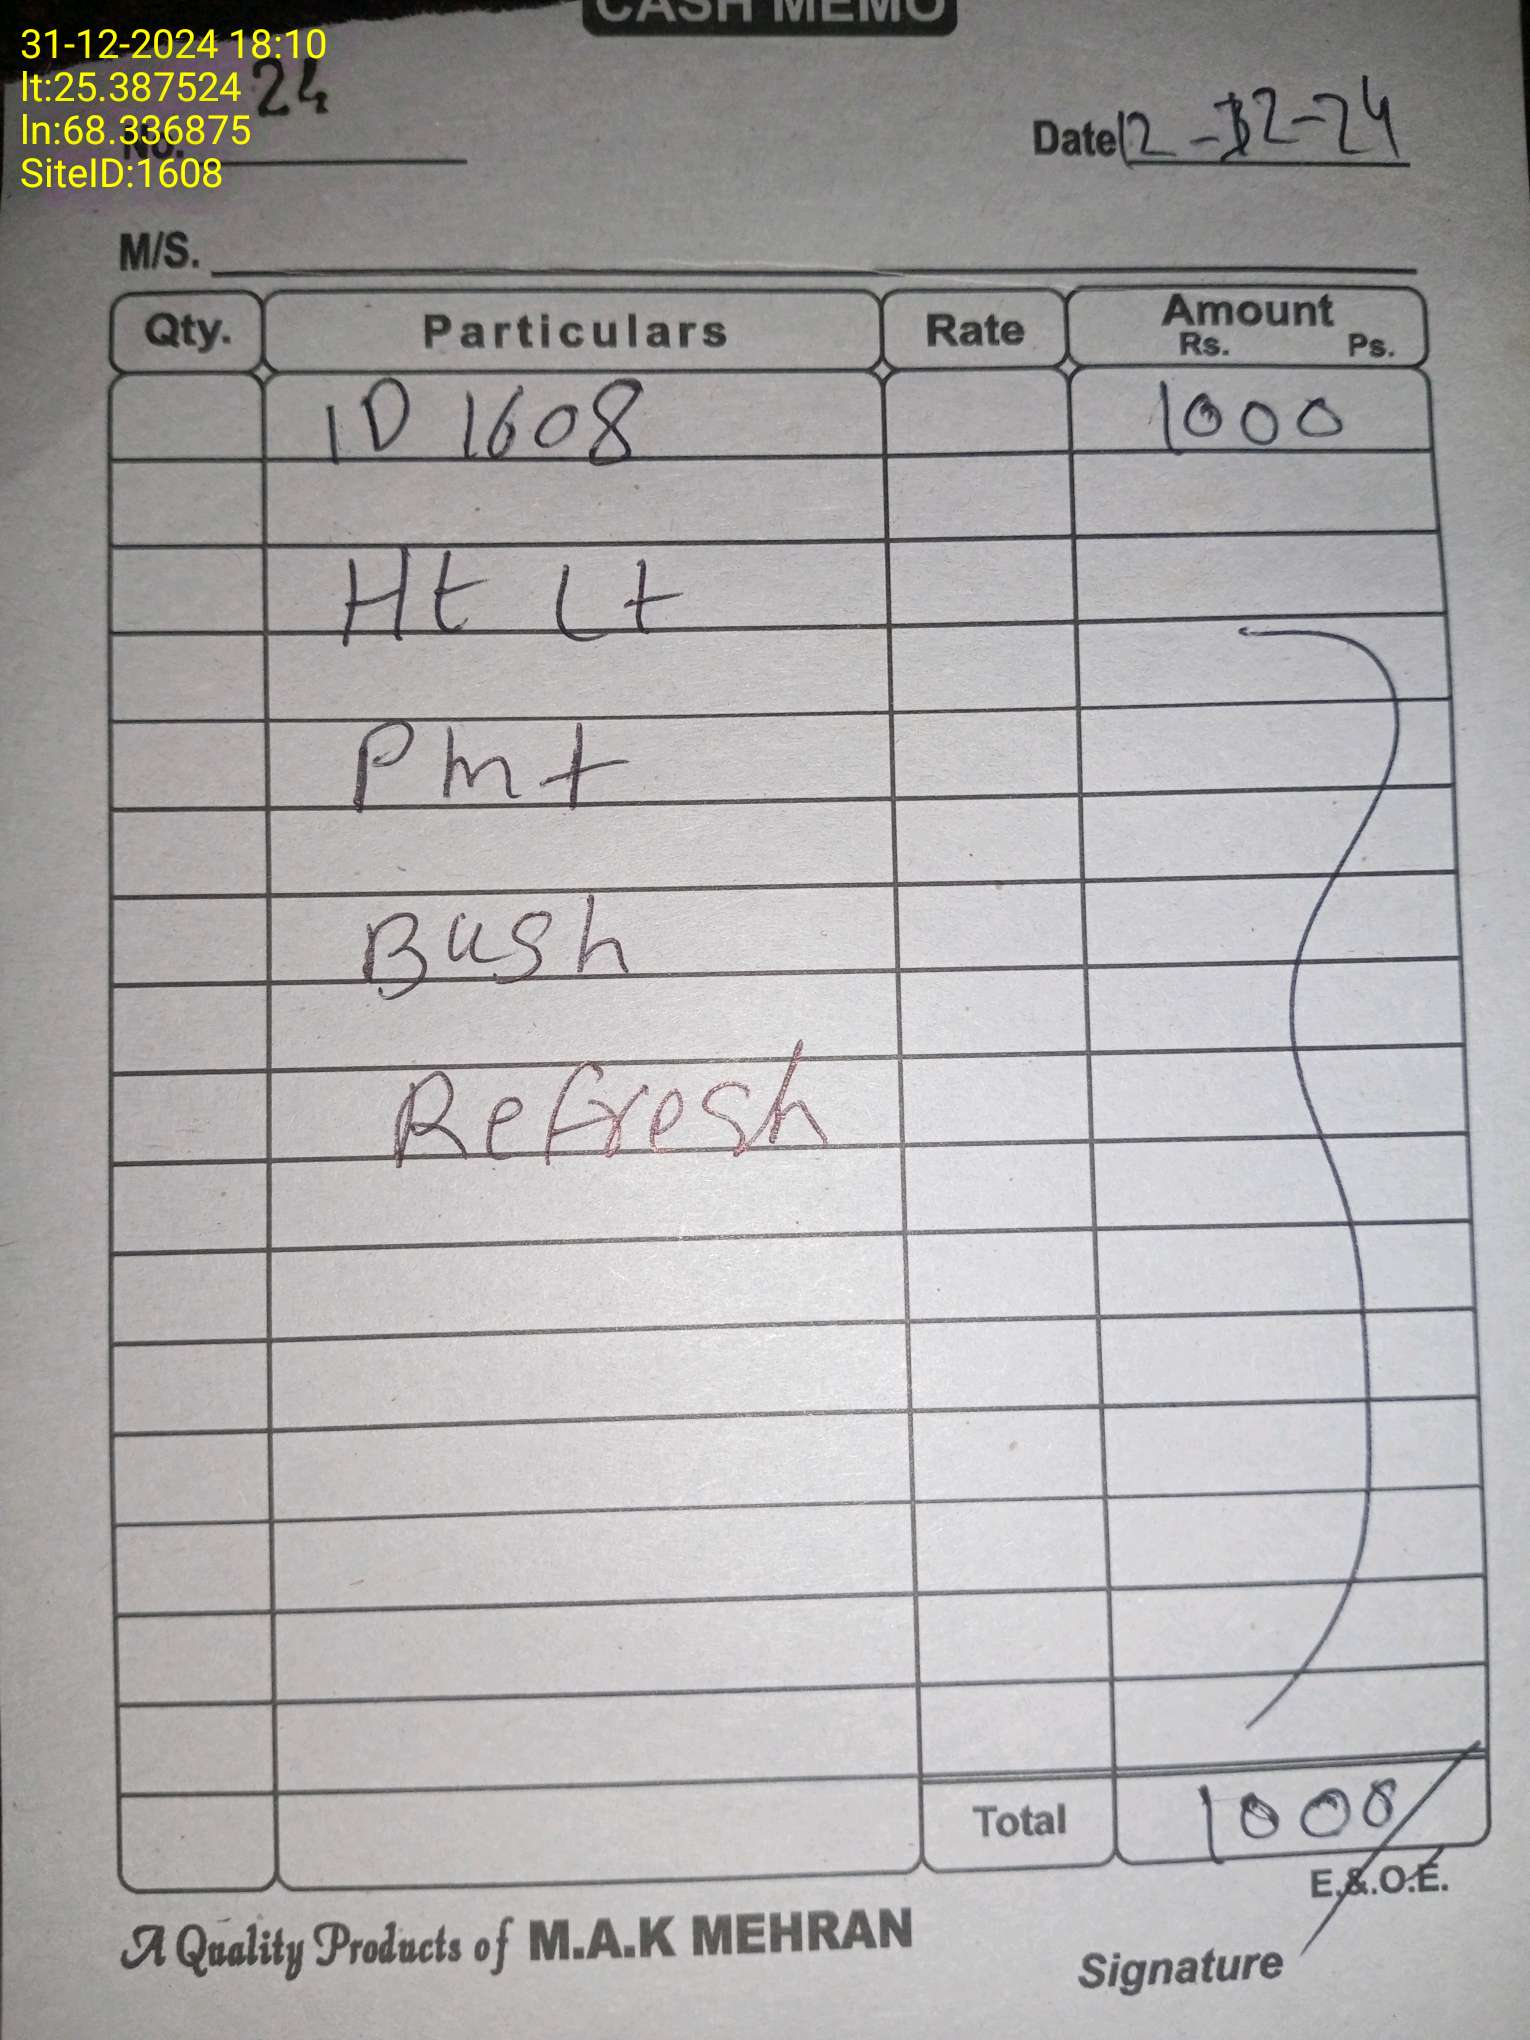 CASH MEMO
31-12-2024 18:10
lt:25.387524
ln:68.336875
SiteID:1608
No. 24
Date 12-12-24
M/S.
Qty. Particulars Rate Amount
Rs. Ps.
ID 1608 1000
Ht Lt
Pmt
Bush
Refresh
Total 1000
E.&.O.E.
A Quality Products of M.A.K MEHRAN
Signature